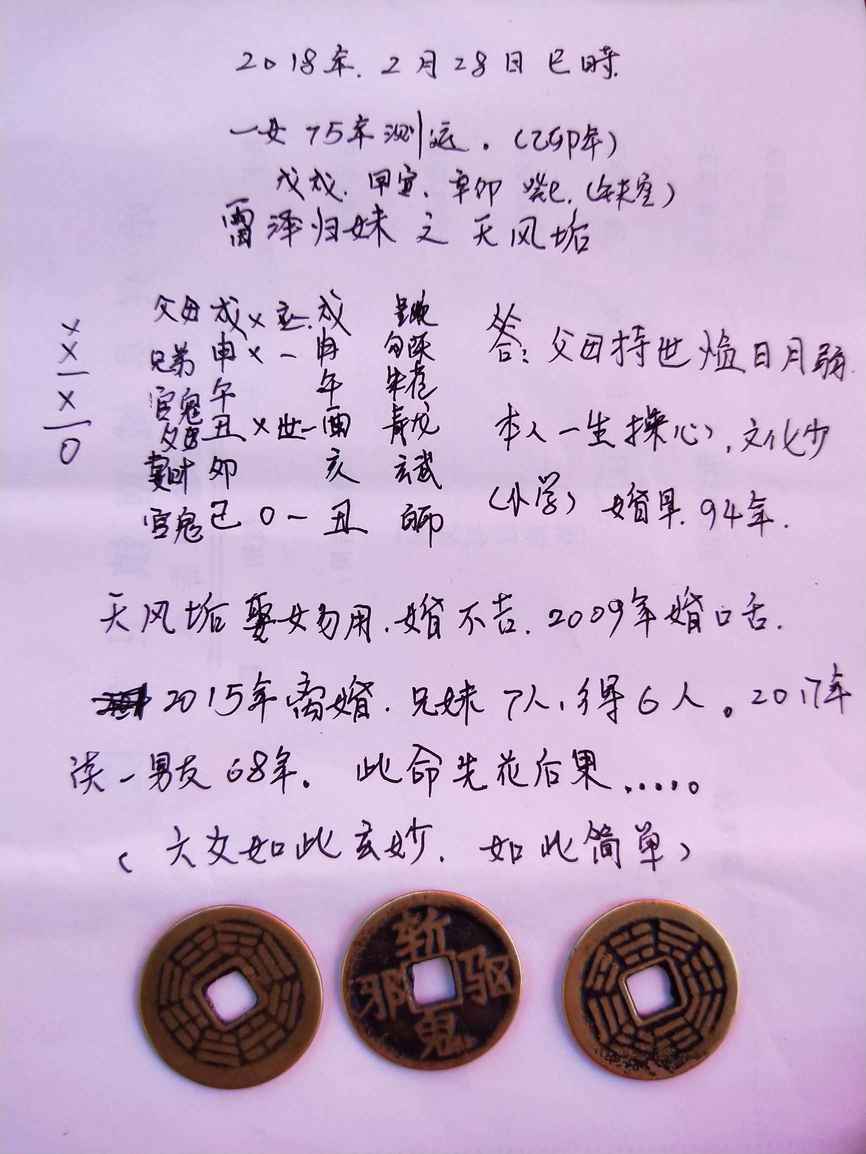 2018年.2月28日巳时.
一女75年测运.(乙卯年)
戊戌.甲寅.辛卯 癸巳.(午未空)
雷泽归妹之天风垢
父母戌×应.戌
兄弟申×一申 勾陈
官鬼午 午 朱雀
父母丑×世一酉 青龙
妻财卯 亥 玄武
官鬼巳0一丑 白虎
×
×
×
0
答:父母持世临日月弱.
本人一生操心,文化少
(小学)婚早.94年.
天风垢娶女勿用.婚不吉.2009年婚口舌.
2015年离婚.兄妹7人,得6人。2017年
谈一男友68年。此命先花后果.....。
(六爻如此玄妙.如此简单)
斩
邪 驱
鬼